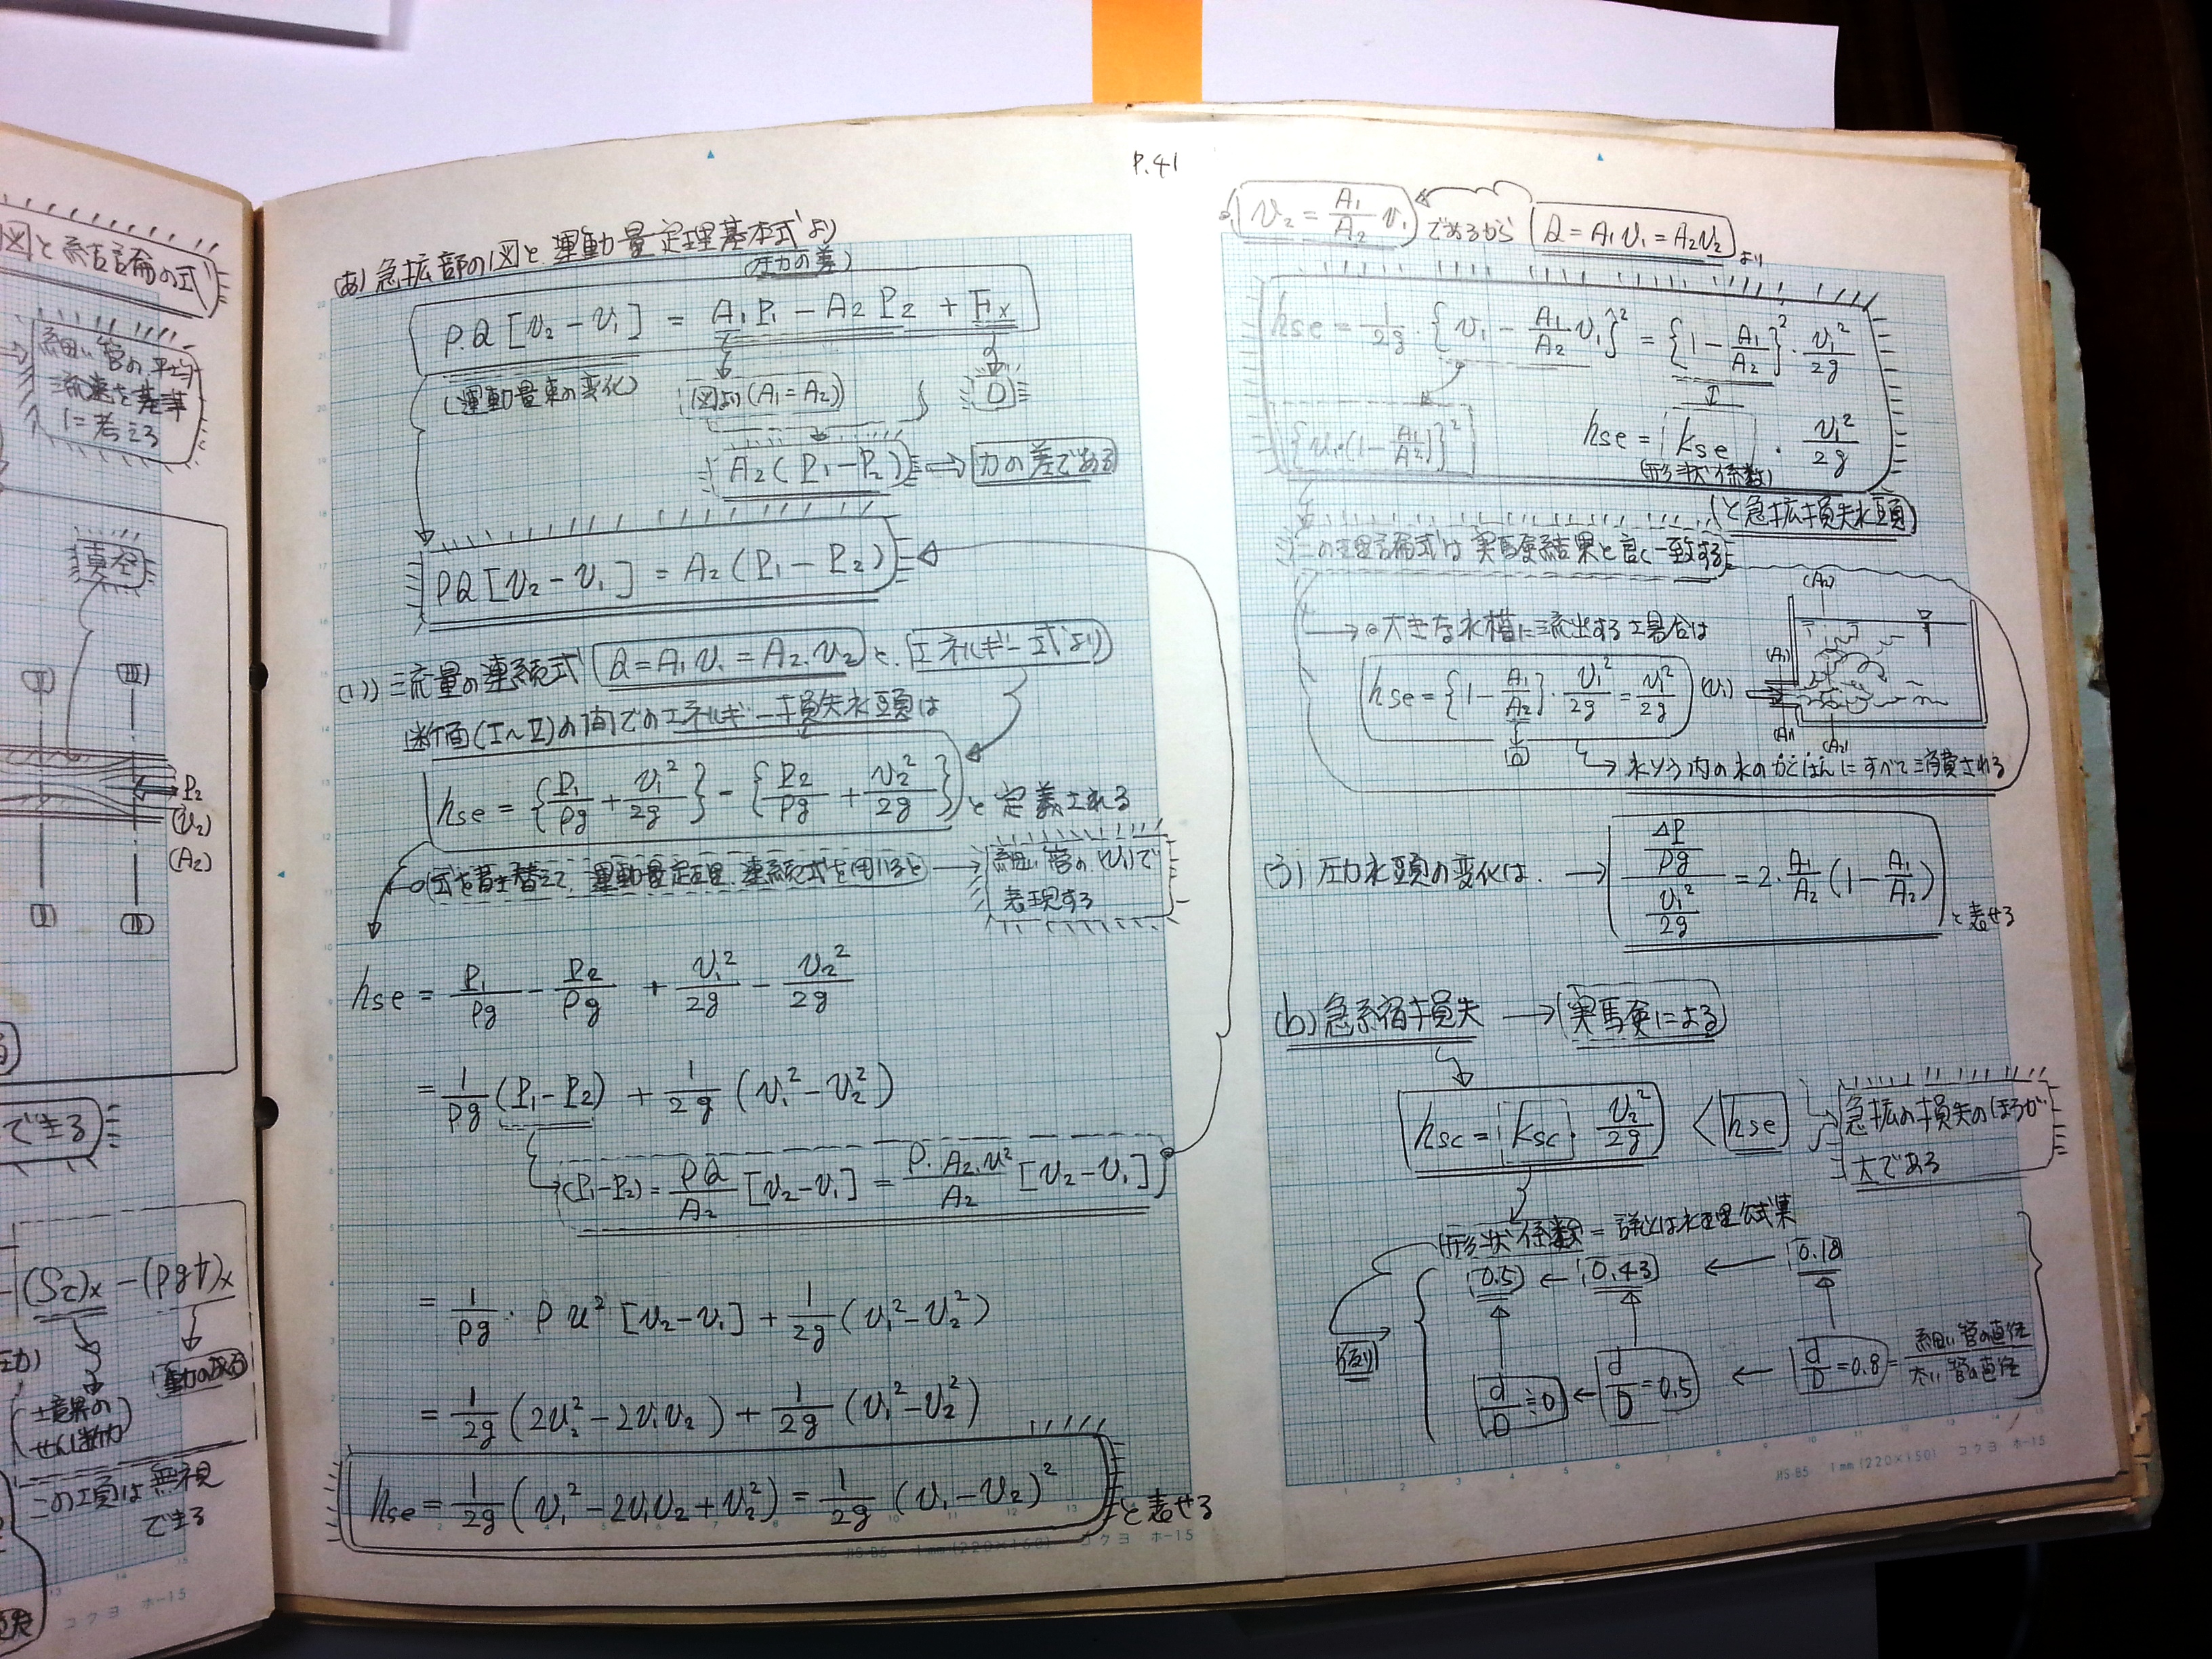 図と結論の式
細い管の平均
流速を基準
に考える
真空
Ⅱ
Ⅲ
P₂
(v₂)
(A₂)
Ⅱ
Ⅲ
できる
(Sτ)x - (ρgt)x
境界の
せん断力
この項は無視
できる
コクヨ ホ-15
P.41
(あ) 急拡部の図と、運動量定理基本式より
(圧力の差)
ρ.Q[v₂-v₁] = A₁P₁ - A₂P₂ + Fx
(運動量束の変化) 図より(A₁=A₂) 0
A₂(P₁-P₂) ⇒ 力の差である
ρQ[v₂-v₁] = A₂(P₁-P₂)
(い) 流量の連続式 Q=A₁v₁=A₂.v₂ と、エネルギー式より
断面(Ⅰ~Ⅱ)の間でのエネルギー損失水頭は
hse = {P₁/ρg + v₁²/2g} - {P₂/ρg + v₂²/2g} と定義される
式を書き替えて、運動量定理、連続式を用いると → 細い管の(v₁)で
表現する
hse = P₁/ρg - P₂/ρg + v₁²/2g - v₂²/2g
= 1/ρg (P₁-P₂) + 1/2g (v₁²-v₂²)
(P₁-P₂) = ρQ/A₂ [v₂-v₁] = ρ.A₂.v²/A₂ [v₂-v₁]
= 1/ρg . ρ v² [v₂-v₁] + 1/2g (v₁²-v₂²)
= 1/2g (2v₂²-2v₁v₂) + 1/2g (v₁²-v₂²)
hse = 1/2g (v₁²-2v₁v₂+v₂²) = 1/2g (v₁-v₂)² と表せる
JIS-B5 1mm(220×160) コクヨ ホ-15
v₂ = A₁/A₂ v₁ であるから Q=A₁v₁=A₂v₂ より
hse = 1/2g . {v₁ - A₁/A₂ v₁}² = {1 - A₁/A₂}² . v₁²/2g
{v₁.(1-A₁/A₂)}²
hse = kse . v₁²/2g
(形状係数)
と急拡損失水頭
この理論式は実験結果と良く一致する
→ 大きな水槽に流出する場合は
hse = {1 - A₁/A₂} . v₁²/2g = v₁²/2g
0
(A₂)
(A₁)
(v₁)
(A₁)
(A₂)
→ 水ソウ内の水のかくはんにすべて消費される
(う) 圧力水頭の変化は、 → (ΔP/ρg)/(v₁²/2g) = 2.A₁/A₂ (1 - A₁/A₂) と表せる
(b) 急縮損失 → 実験による
hsc = ksc . v₂²/2g < hse
急拡の損失のほうが
大である
形状係数 = 詳しくは水理公式集
0.5 ← 0.43 ← 0.18
(例)
d/D≒0 ← d/D=0.5 ← d/D=0.8 = 細い管の直径/太い管の直径
JIS-B5 1mm(220×150) コクヨ ホ-15